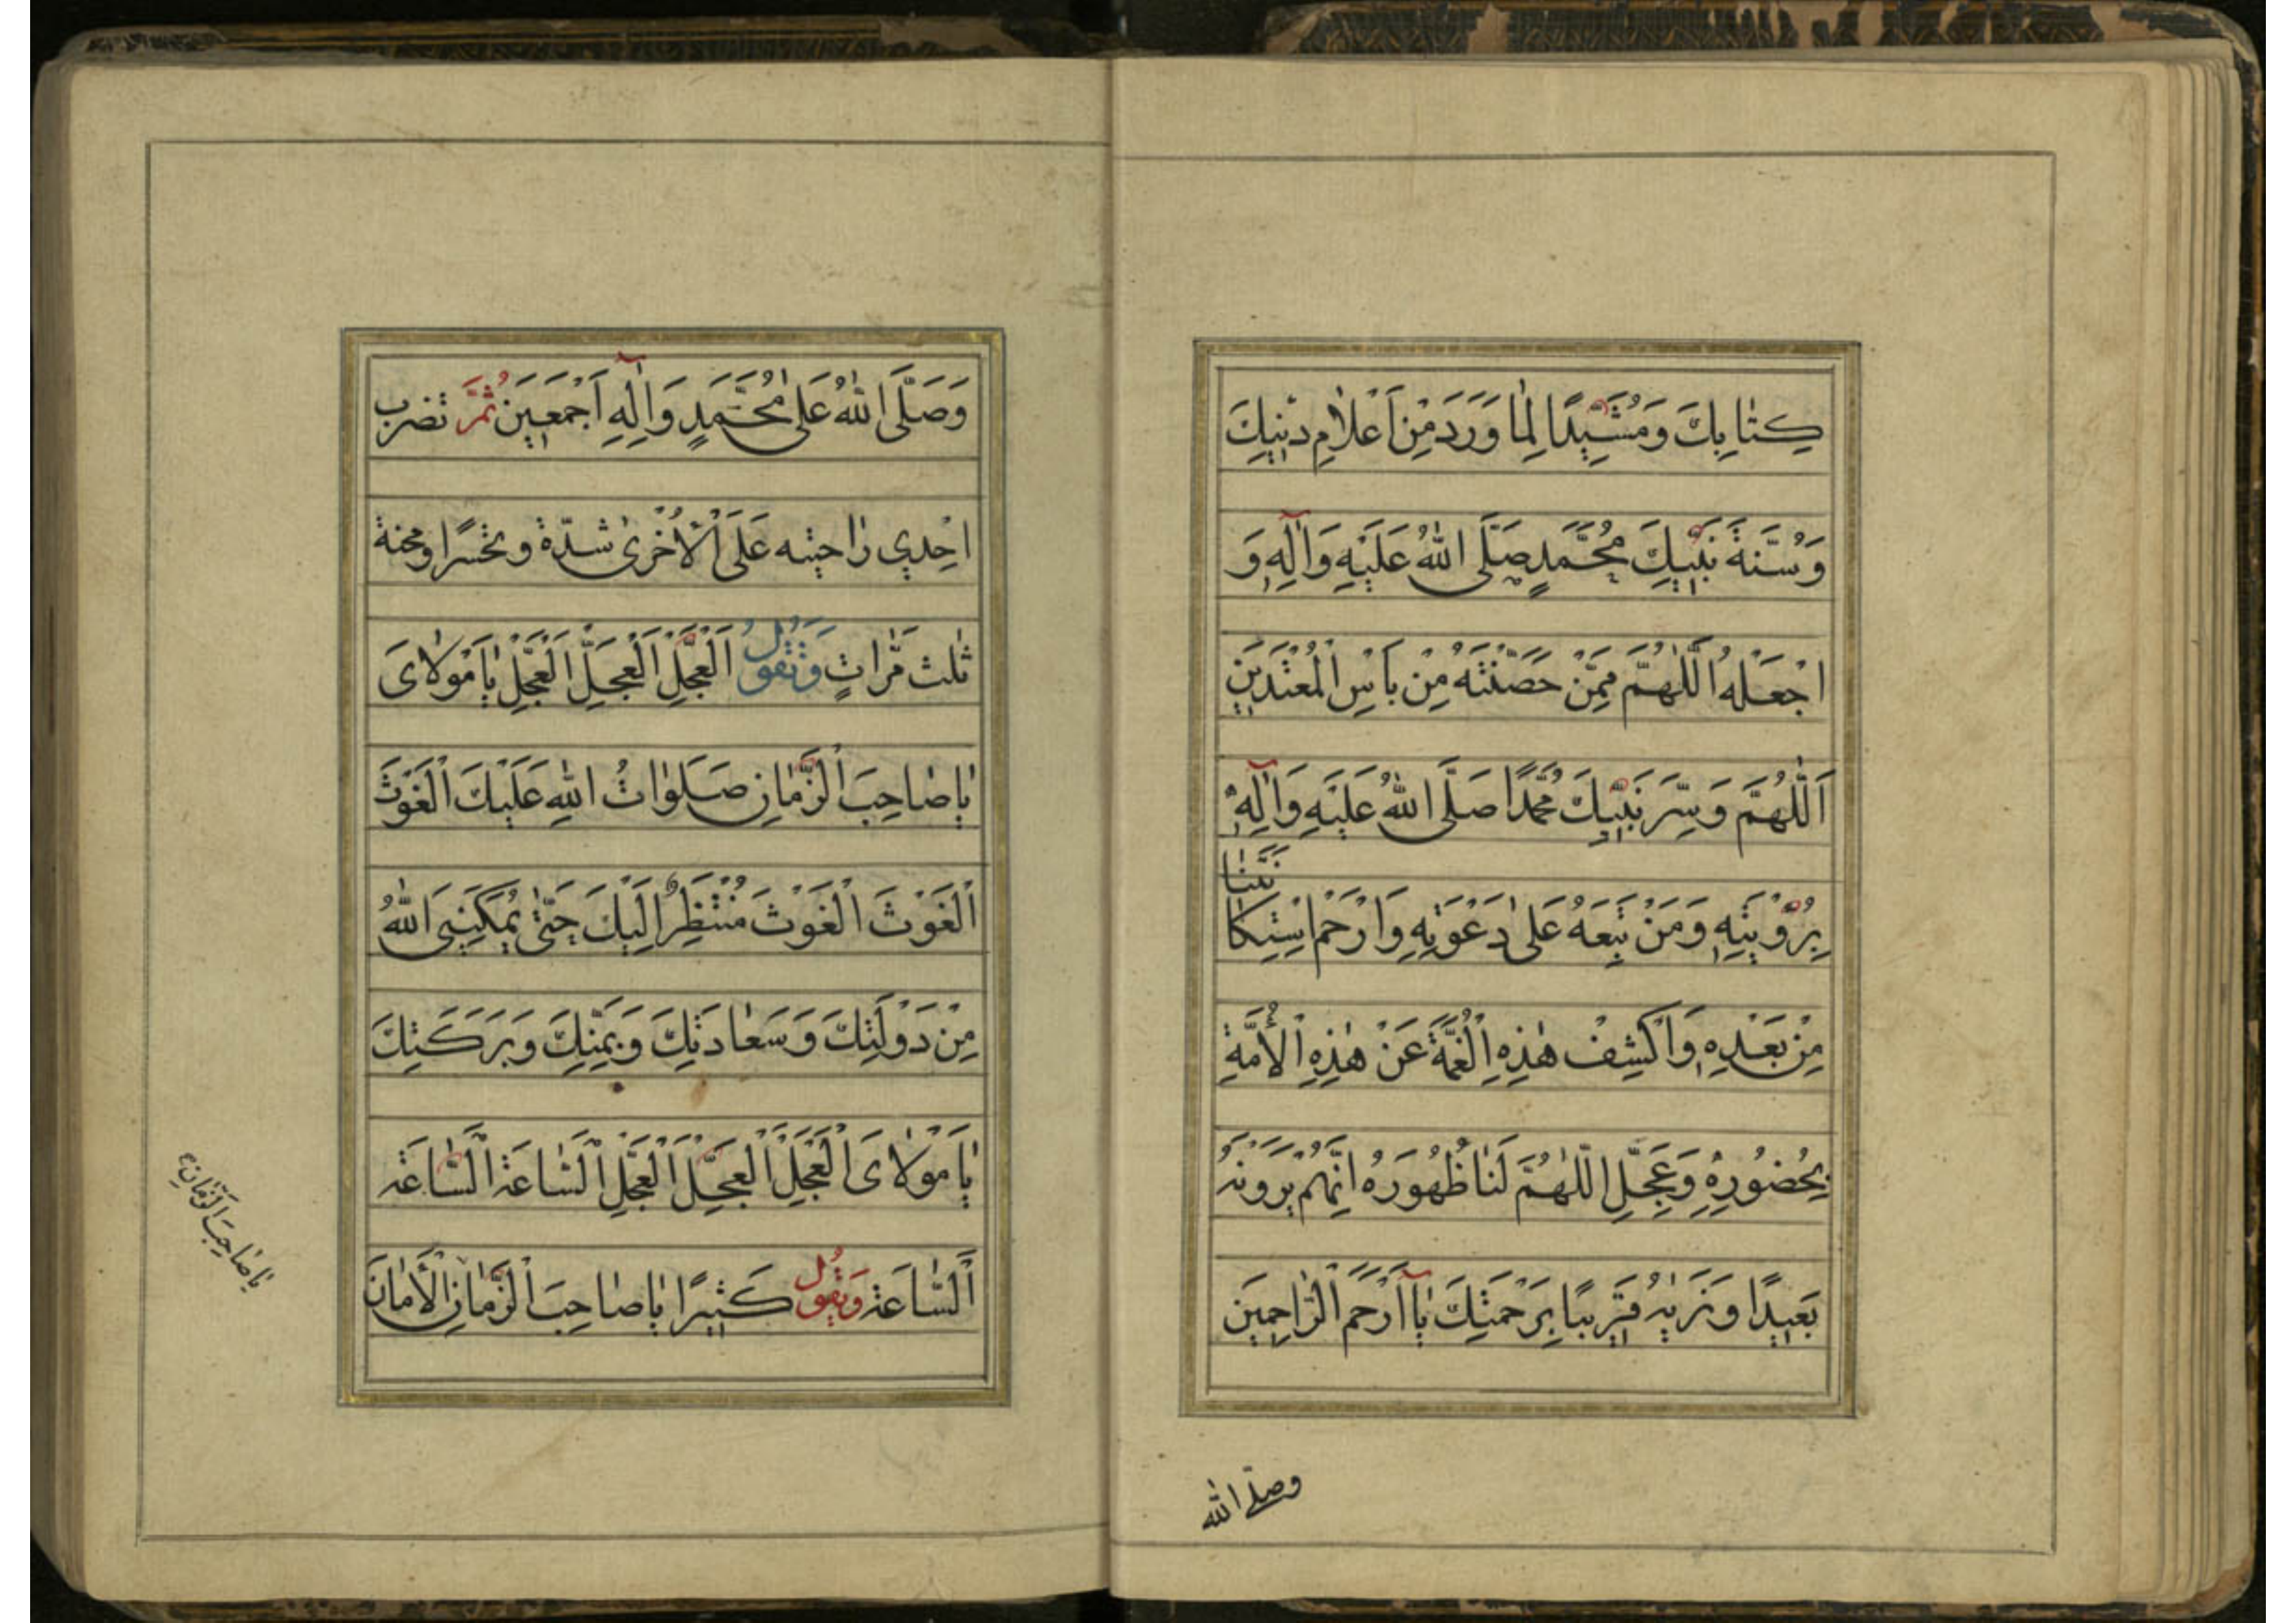 كِتٰابِكَ وَمُشَيِّدًا لِمٰا وَرَدَ مِنْ اَعْلٰامِ دِينِكَ
وَسُنَّةِ نَبِيِّكَ مُحَمَّدٍ صَلَّى اللّٰهُ عَلَيْهِ وَاٰلِهِ وَ
اجْعَلْهُ اَللّٰهُمَّ مِمَّنْ حَصَّنْتَهُ مِنْ بَاْسِ الْمُعْتَدِينَ
اَللّٰهُمَّ وَسِّرَ نَبِيِّكَ مُحَمَّدًا صَلَّى اللّٰهُ عَلَيْهِ وَاٰلِهِ
بِرُؤْيَتِهِ وَمَنْ تَبِعَهُ عَلىٰ دَعْوَتِهِ وَارْحَمْ اسْتِكٰا
نَتَنٰا
مِنْ بَعْدِهِ وَاكْشِفْ هٰذِهِ الْغُمَّةَ عَنْ هٰذِهِ الْاُمَّةِ
بِحُضُورِهِ وَعَجِّلِ اللّٰهُمَّ لَنٰا ظُهُورَهُ اِنَّهُمْ يَرَوْنَهُ
بَعِيدًا وَنَرٰيهُ قَرِيبًا بِرَحْمَتِكَ يٰا اَرْحَمَ الرّٰاحِمِينَ
وصلّى الله
وَصَلَّى اللّٰهُ عَلىٰ مُحَمَّدٍ وَاٰلِهِ اَجْمَعِينَ ثُمَّ تضرب
احِدي رٰاحتيه عَلَى الْاُخْرىٰ شدّة وتحسّرًا ومحنة
ثلث مَرّٰاتٍ وَتَقُولُ اَلْعَجَلَ الْعَجَلَ الْعَجَلَ يٰا مَوْلٰاىَ
يٰا صٰاحِبَ الزَّمٰانِ صَلَوٰاتُ اللّٰهِ عَلَيْكَ الْغَوْثَ
الْغَوْثَ الْغَوْثَ مُنْتَظِرٌ اِلَيْكَ حَتّىٰ يُمَكِّنَنِىَ اللّٰهُ
مِنْ دَوْلَتِكَ وَسَعٰادَتِكَ وَيَمْنِكَ وَبَرَكَتِكَ
يٰا مَوْلٰاىَ الْعَجَلَ الْعَجَلَ الْعَجَلَ السّٰاعَةَ السّٰاعَةَ
السّٰاعَةَ وَتَقُولُ كَثِيرًا يٰا صٰاحِبَ الزَّمٰانِ الْاَمٰانَ
يٰا صٰاحِبَ الزَّمٰانِ